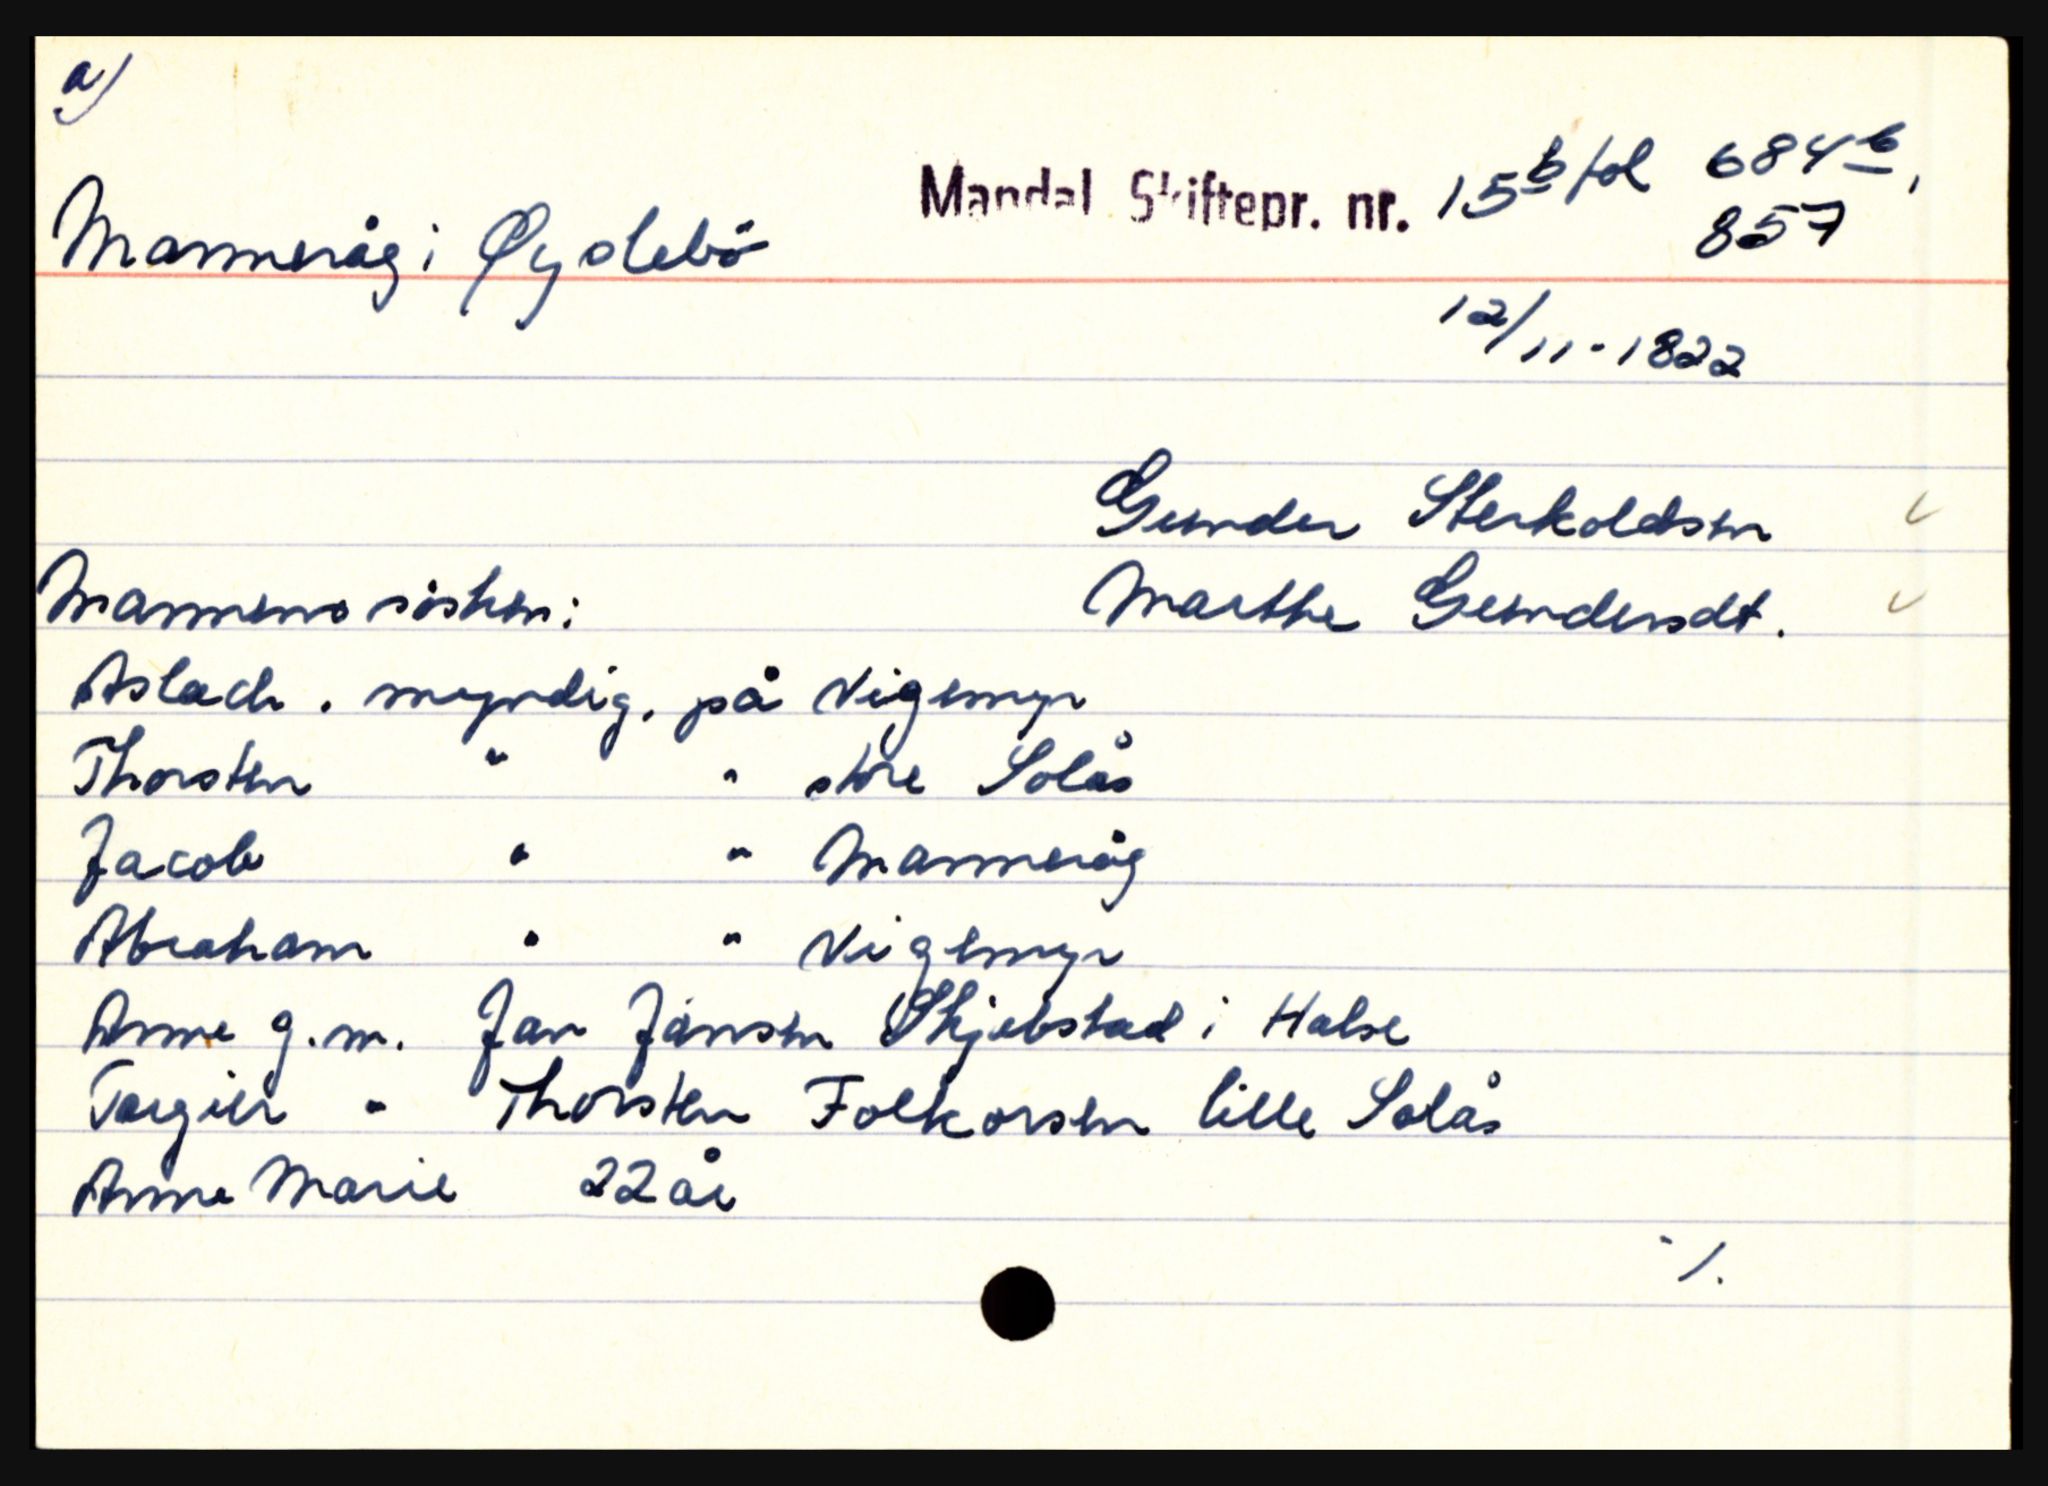 a)
Mandal Skiftepr. nr. 15b fol 684b,
857
Manneråg i Øyslebö
12/11-1822
Gunder Sterkoldsen
Mannens sösken: Marthe Gundersdt.
Aslach. myndig. på Vigemyr
Thorsten " " store Solås
Jacob " " Manneråg
Abraham " " Vigemyr
Anne g.m. Jan Jansen Skjebstad i Halse
Torgier " Thorsten Folkorsen lille Solås
Anne Marie 22 år
./.